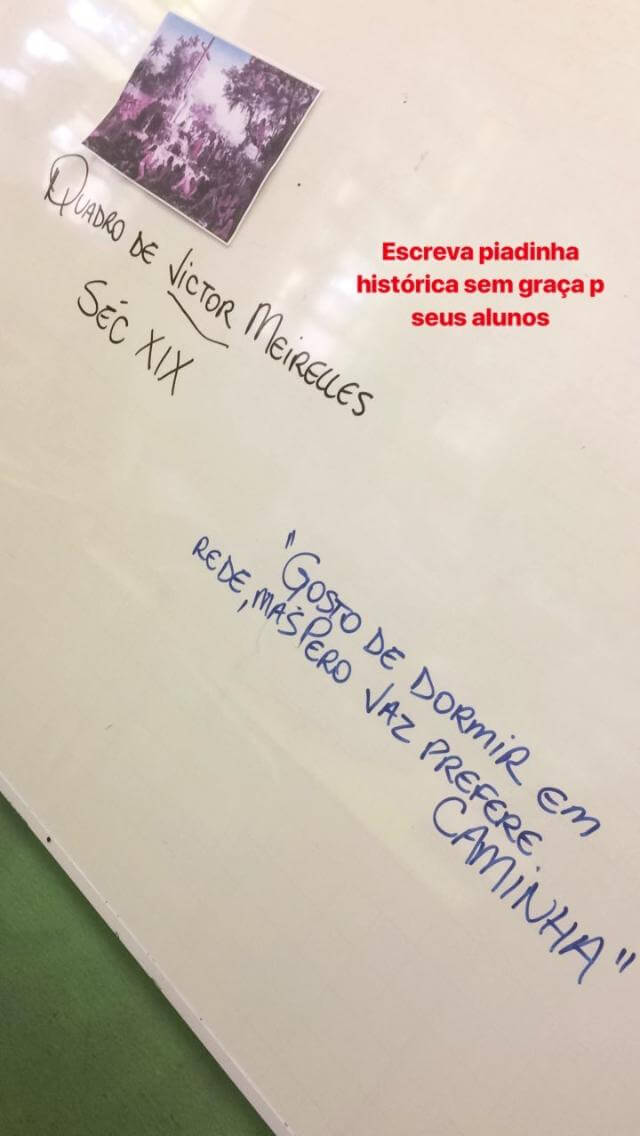 QUADRO DE VICTOR MEIRELLES
SÉC XIX
Escreva piadinha
histórica sem graça p
seus alunos
"GOSTO DE DORMIR EM
REDE, MAS PERO VAZ PREFERE
CAMINHA"